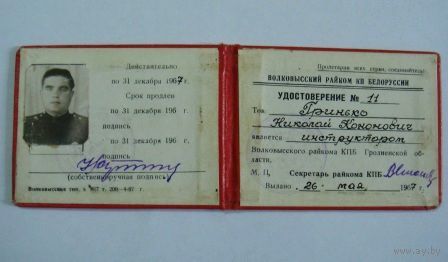 Действительно
по 31 декабря 1967 г.
Срок продлен
по 31 декабря 196 г.
подпись
по 31 декабря 196 г.
подпись
(собственноручная подпись)
Волковысская тип. 1967 г. 200-4-67 г.
Пролетарии всех стран, соединяйтесь!
ВОЛКОВЫССКИЙ РАЙКОМ КП БЕЛОРУССИИ
УДОСТОВЕРЕНИЕ № 11
Тов. Гринько
Николай Кононович
является инструктором
Волковысского райкома КПБ Гродненской
области.
М. П. Секретарь райкома КПБ
Выдано „26“ мая 1967 г.
www.ay.by